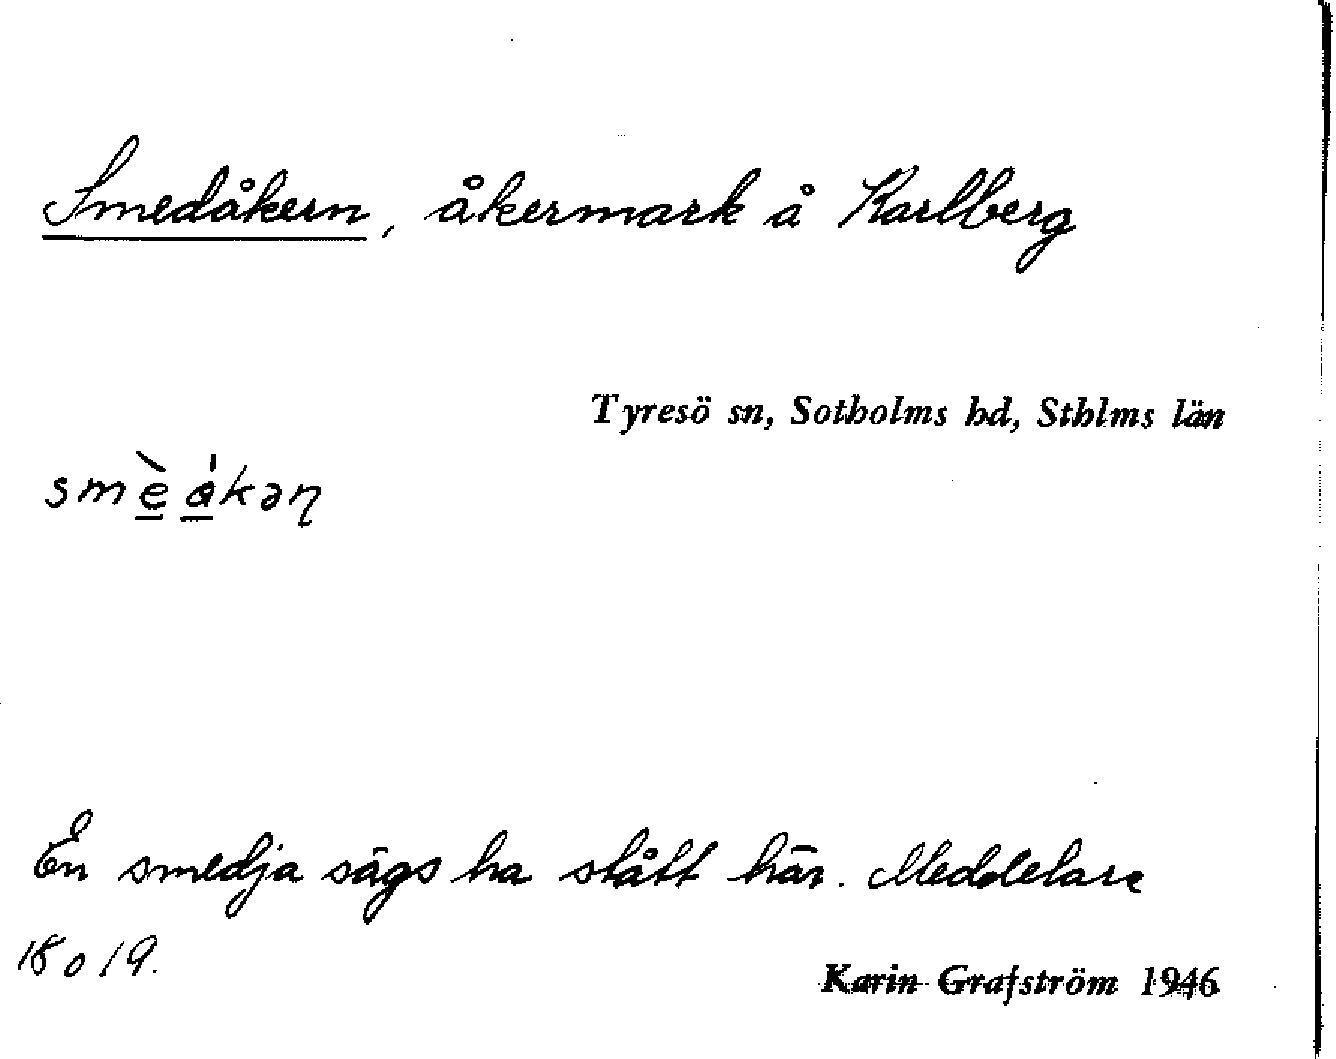 Smedåkern, åkermark å Karlberg
Tyresö sn, Sotholms hd, Sthlms län
smè̱ å̱kəɳ
En smedja sägs ha stått här. Meddelare
18 o 19.
Karin Grafström 1946